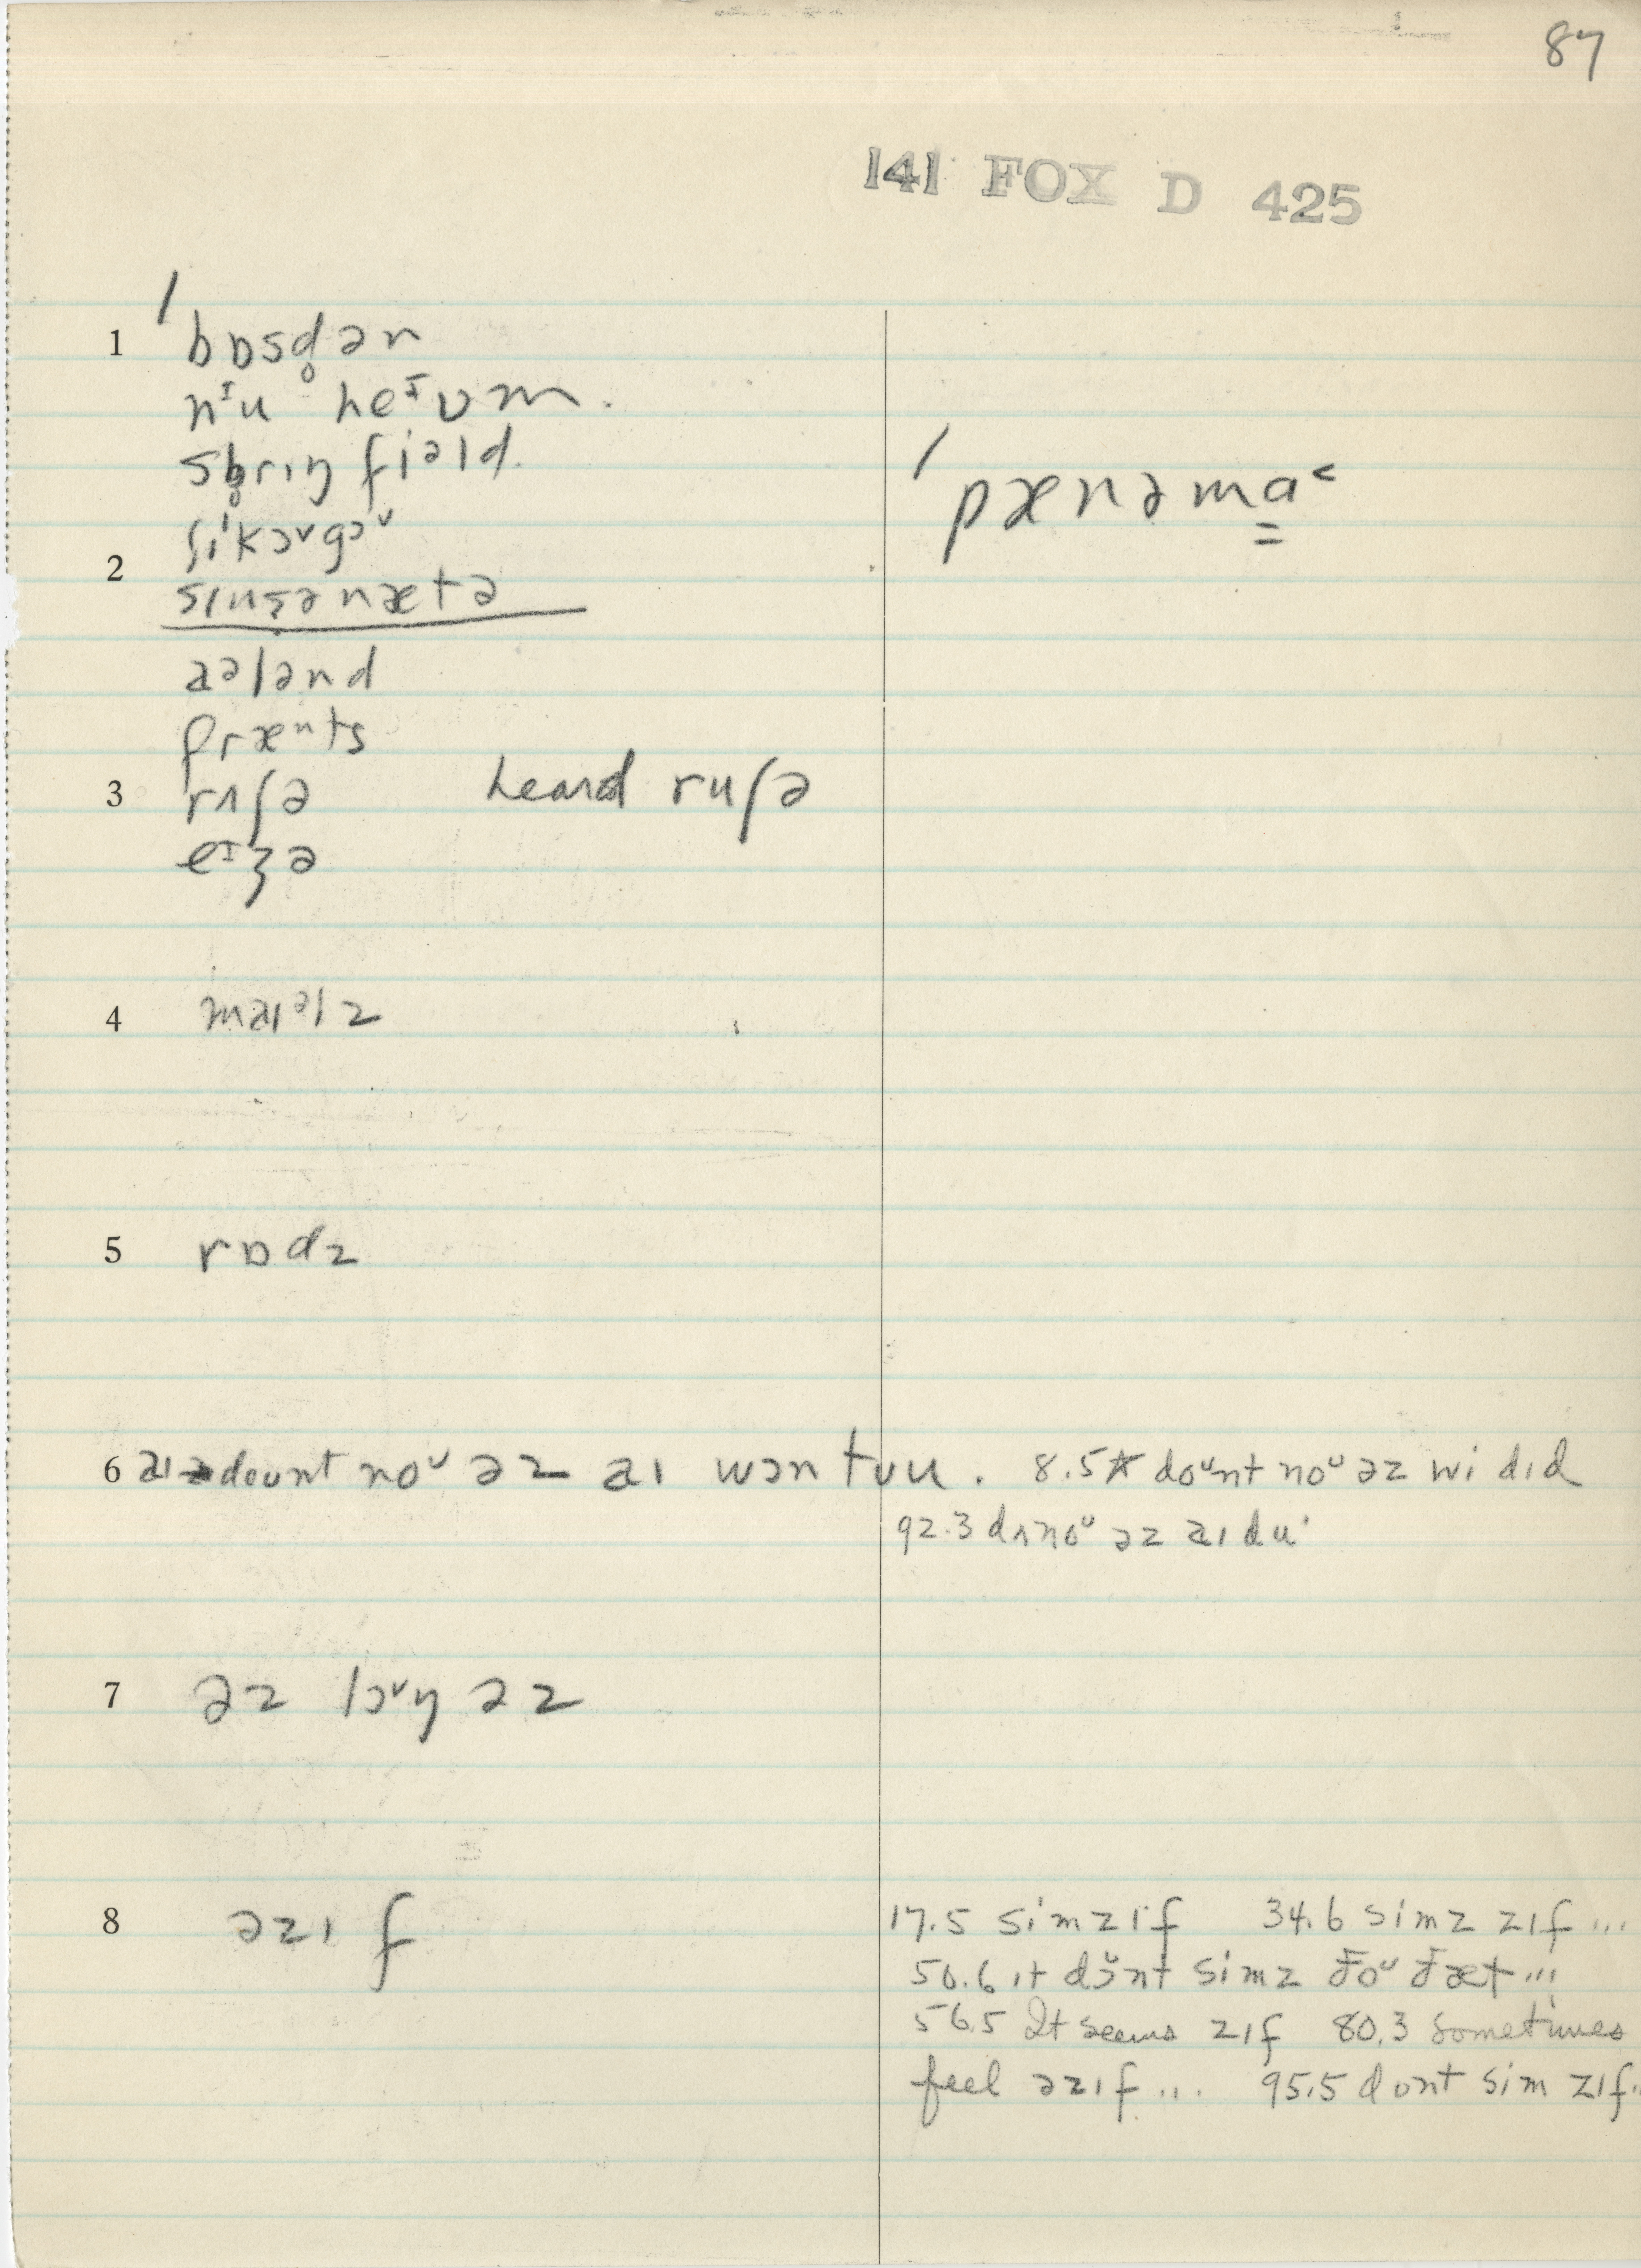 87
141 FOX D 425
1 / bɒsd̥ən
nᶦu heᶦvm̩.
sb̥rɪŋfiᵊld.
/ pænəmɑ̳˂
ʃɪˈkɔᵛgɔᵛ
2 sɪnsənætə
aələnd
fræⁿts
3 rʌʃə heard ruʃə
eᶦʒə
4 maɪᵊlz
5 rɒdz
6 aɪ dount noᵘ əz aɪ wɔn tuu. 8.5* doᵘnt noᵘ əz wi dɪd
92.3 dʌnoᵘ əz aɪ du·
7 əz lɔᵛŋ əz
8 əzɪf
17.5 simzɪf 34.6 simz zɪf ...
50.6 ɪt dɔ̆nt simz ðoᵘ ðæt ...
56.5 It seems zɪf 80.3 sometimes
feel əzɪf ... 95.5 dont sim zɪf..